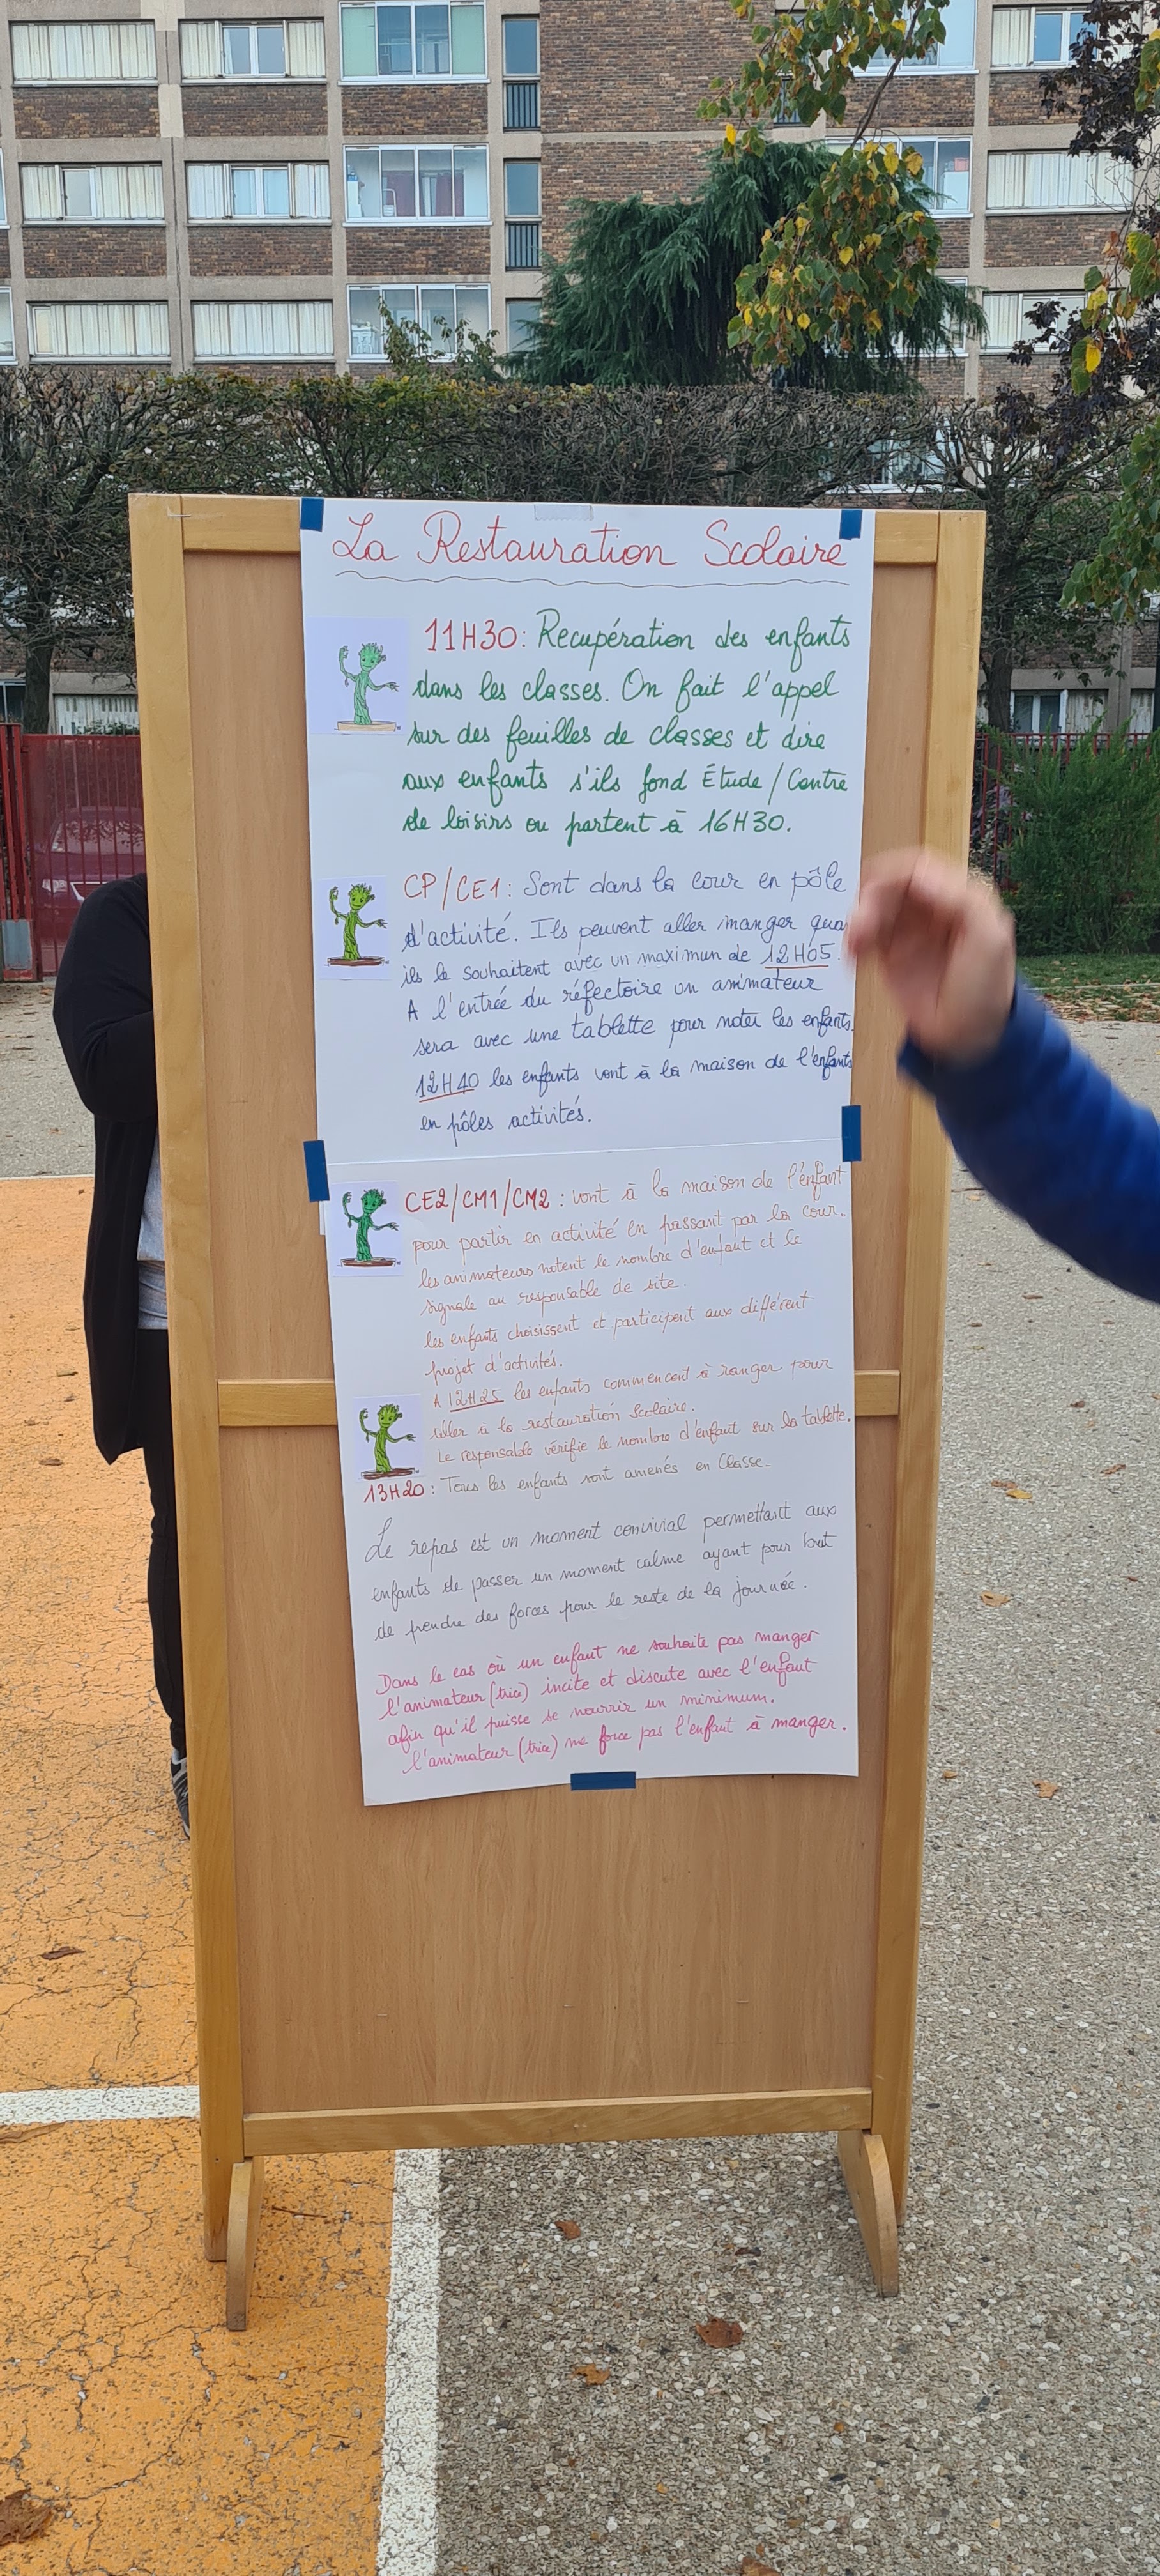 La Restauration Scolaire
11H30: Recupération des enfants
dans les classes. On fait l'appel
sur des feuilles de classes et dire
aux enfants s'ils fond Étude/Centre
de loisirs ou partent à 16H30.
CP/CE1: Sont dans la cour en pôle
d'activité. Ils peuvent aller manger
ils le souhaitent avec un maximun de 12H05.
A l'entrée du réfectoire un animateur
sera avec une tablette pour noter les enfants.
12H40 les enfants vont à la maison de l'enfants
en pôles activités.
CE2/CM1/CM2 : vont à la maison de l'enfant
pour partir en activité en passant par la cour.
les animateurs notent le nombre d'enfant et le
signale au responsable de site.
les enfants choisissent et participent aux différent
projet d'activités.
A 12H25 les enfants commencent à ranger pour
aller à la restauration Scolaire.
Le responsable vérifie le nombre d'enfant sur la tablette.
13H20 : Tous les enfants sont amenés en Classe.
Le repas est un moment convivial permettant aux
enfants de passer un moment calme ayant pour but
de prendre des forces pour le reste de la journée.
Dans le cas où un enfant ne souhaite pas manger
l'animateur (trice) incite et discute avec l'enfant
afin qu'il puisse se nourrir un minimum.
l'animateur (trice) ne force pas l'enfant à manger.